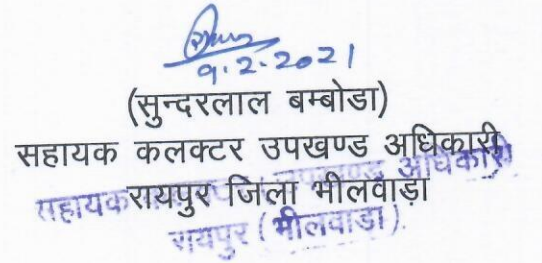 9.2.2021
(सुन्दरलाल बम्बोडा)
सहायक कलक्टर उपखण्ड अधिकारी
रायपुर जिला भीलवाड़ा
सहायक उपखण्ड अधिकारी
रायपुर (भीलवाडा)